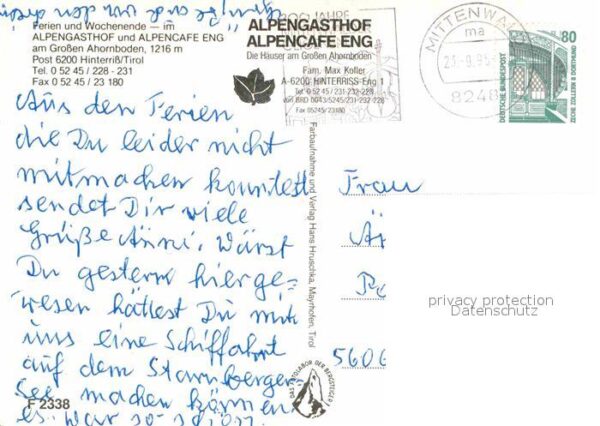 Ferien und Wochenende – im
ALPENGASTHOF und ALPENCAFE ENG
am Großen Ahornboden, 1216 m
Post 6200 Hinterriß/Tirol
Tel. 0 52 45 / 228 - 231
Fax 0 52 45 / 23 180
ALPENGASTHOF
ALPENCAFE ENG
Die Häuser am Großen Ahornboden
Fam. Max Kofler
A-6200 HINTERRISS-Eng 1
Tel. 0 52 45 / 231-232-228
von BRD 0043/5245/231-232-228
Fax 05245/23180
JAHRE
MITTENWA
ma
8248
80
DEUTSCHE BUNDESPOST
ZECHE ZOLLERN II DORTMUND
Aus den Ferien
die Du leider nicht
mitmachen konntest
sendet Dir viele
Grüße Anni. Wärst
Du gestern hierge-
wesen hättest Du mit
uns eine Schiffahrt
auf dem Starnberger
See machen können
es war so schön.
Farbaufnahme und Verlag Hans Hruschka, Mayrhofen, Tirol
Frau
560
privacy protection
Datenschutz
DAS FOTOLABOR DER BERGSTEIGER
F 2338